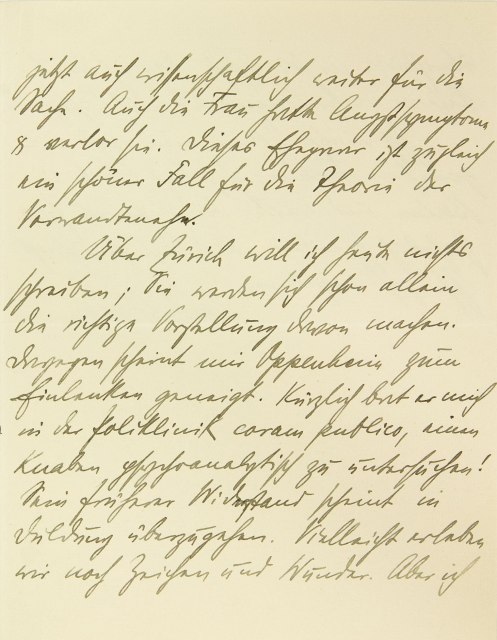 jetzt auch wissenschaftlich weiter für die
Sache. Auch die Frau hatte Angstsymptome
& verlor sie. Dieses Ehepaar ist zugleich
ein schöner Fall für die Theorie der
Verwandtenehe.
Über Zürich will ich heute nichts
schreiben; Sie werden sich schon allein
die richtige Vorstellung davon machen.
Dagegen scheint mir Oppenheim zum
Einlenken geneigt. Kürzlich bat er mich
in der Poliklinik coram publico, einen
Knaben psychoanalytisch zu untersuchen!
Sein früherer Widerstand scheint in
Duldung überzugehen. Vielleicht erleben
wir noch Zeichen und Wunder. Aber ich